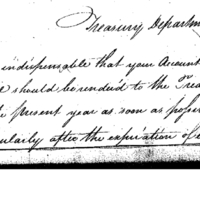 Treasury Departm
indispensable that your Account
should be rendered to the Trea
present year as soon as possi
ularly after the expiration of